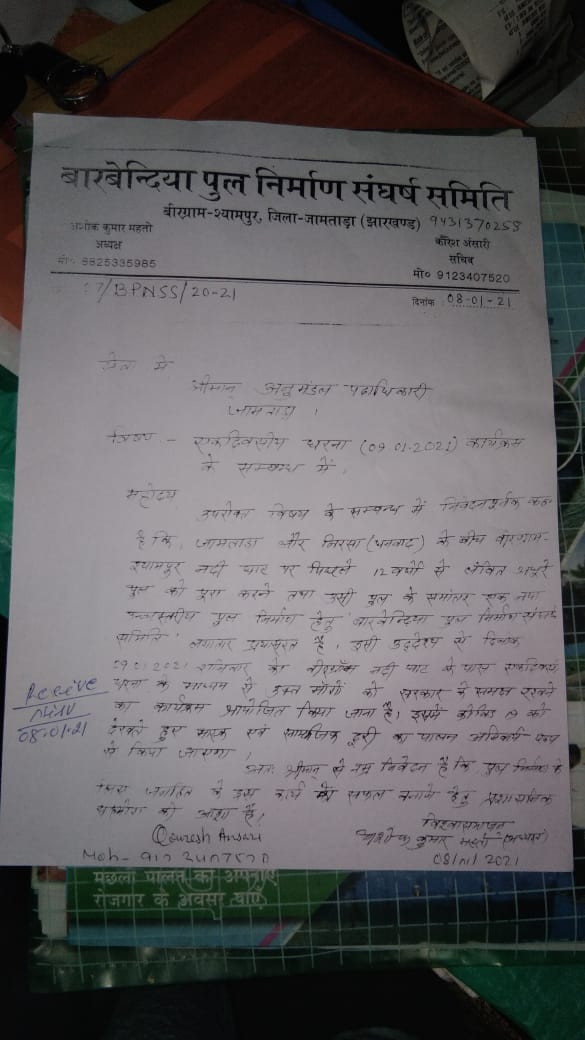 बारबेन्दिया पुल निर्माण संघर्ष समिति
बीरग्राम-श्यामपुर, जिला-जामताड़ा (झारखण्ड) 9431370258
अशोक कुमार महतो
अध्यक्ष
मो० 9825335985
कौरेश अंसारी
सचिव
मो० 9123407520
/BPNSS/20-21
दिनांक 08-01-21
सेवा में
श्रीमान् अनुमंडल पदाधिकारी
जामताड़ा ।
विषय - एकदिवसीय धरना (09.01.2021) कार्यक्रम
के सम्बन्ध में ।
महोदय
उपरोक्त विषय के सम्बन्ध में निवेदनपूर्वक कहना
है कि, जामताड़ा और निरसा (धनबाद) के बीच वीरग्राम-
श्यामपुर नदी घाट पर पिछले 12 वर्षों से लंबित अधूरे
पुल को पूरा करने तथा उसी पुल के समांतर एक नया
उच्चस्तरीय पुल निर्माण हेतु 'बारबेन्दिया पुल निर्माण संघर्ष
समिति' लगातार प्रयासरत है । इसी उद्देश्य से दिनांक
09.01.2021 शनिवार को वीरग्राम नदी घाट के पास एकदिवसीय
धरना के माध्यम से उक्त माँगों को सरकार के समक्ष रखने
का कार्यक्रम आयोजित किया जाना है। इसमें कोविड 19 को
देखते हुए मास्क एवं सामाजिक दूरी का पालन अनिवार्य
से किया जाएगा ।
अतः श्रीमान् से नम्र निवेदन है कि, पुल निर्माण के
जनहित के इस कार्य को सफल बनाने हेतु प्रशासनिक
सहयोग की आशा है।
Receive
08-01-21
विश्वासभाजन
Qouresh Ansari
अशोक कुमार महतो (अध्यक्ष)
Moh- 912340752
08/01/2021
मछली पालन को अपनाएं
रोजगार के अवसर पाएँ